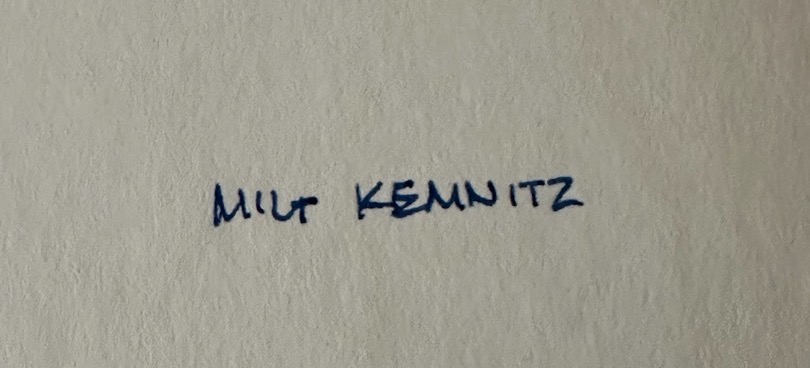 MILT KEMNITZ